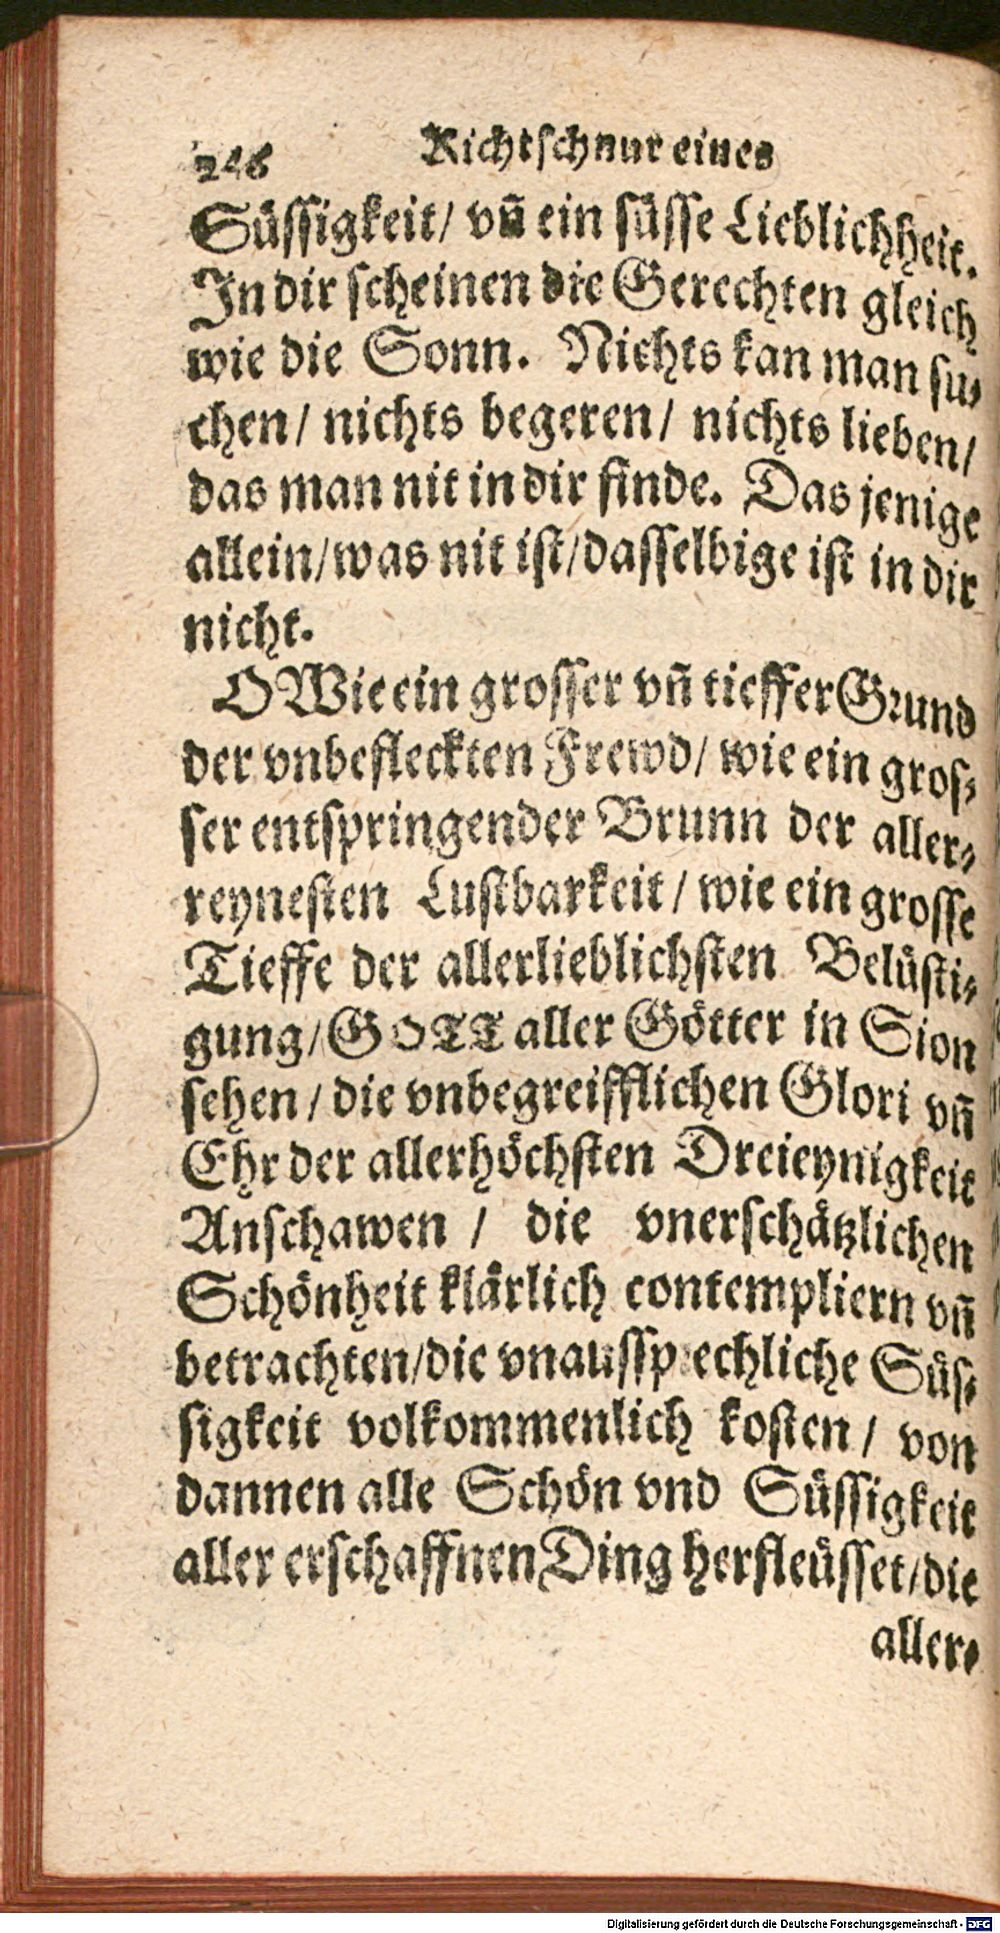 246 Richtschnur eines
Süssigkeit/ vñ ein süsse Lieblichheit.
In dir scheinen die Gerechten gleich
wie die Sonn. Nichts kan man su-
chen/ nichts begeren/ nichts lieben/
das man nit in dir finde. Das jenige
allein/was nit ist/dasselbige ist in dir
nicht.
O Wie ein grosser vñ tieffer Grund
der vnbefleckten Frewd/ wie ein gros-
ser entspringender Brunn der aller-
reynesten Lustbarkeit / wie ein grosse
Tieffe der allerlieblichsten Belüsti-
gung/GOTT aller Götter in Sion
sehen / die vnbegreifflichen Glori vñ
Ehr der allerhöchsten Dreieynigkeit
Anschawen / die vnerschätzlichen
Schönheit klärlich contempliern vñ
betrachten/die vnaussprechliche Süs-
sigkeit volkommenlich kosten / von
dannen alle Schön vnd Süssigkeit
aller erschaffnen Ding herfleüsset/die
aller-
Digitalisierung gefördert durch die Deutsche Forschungsgemeinschaft - DFG